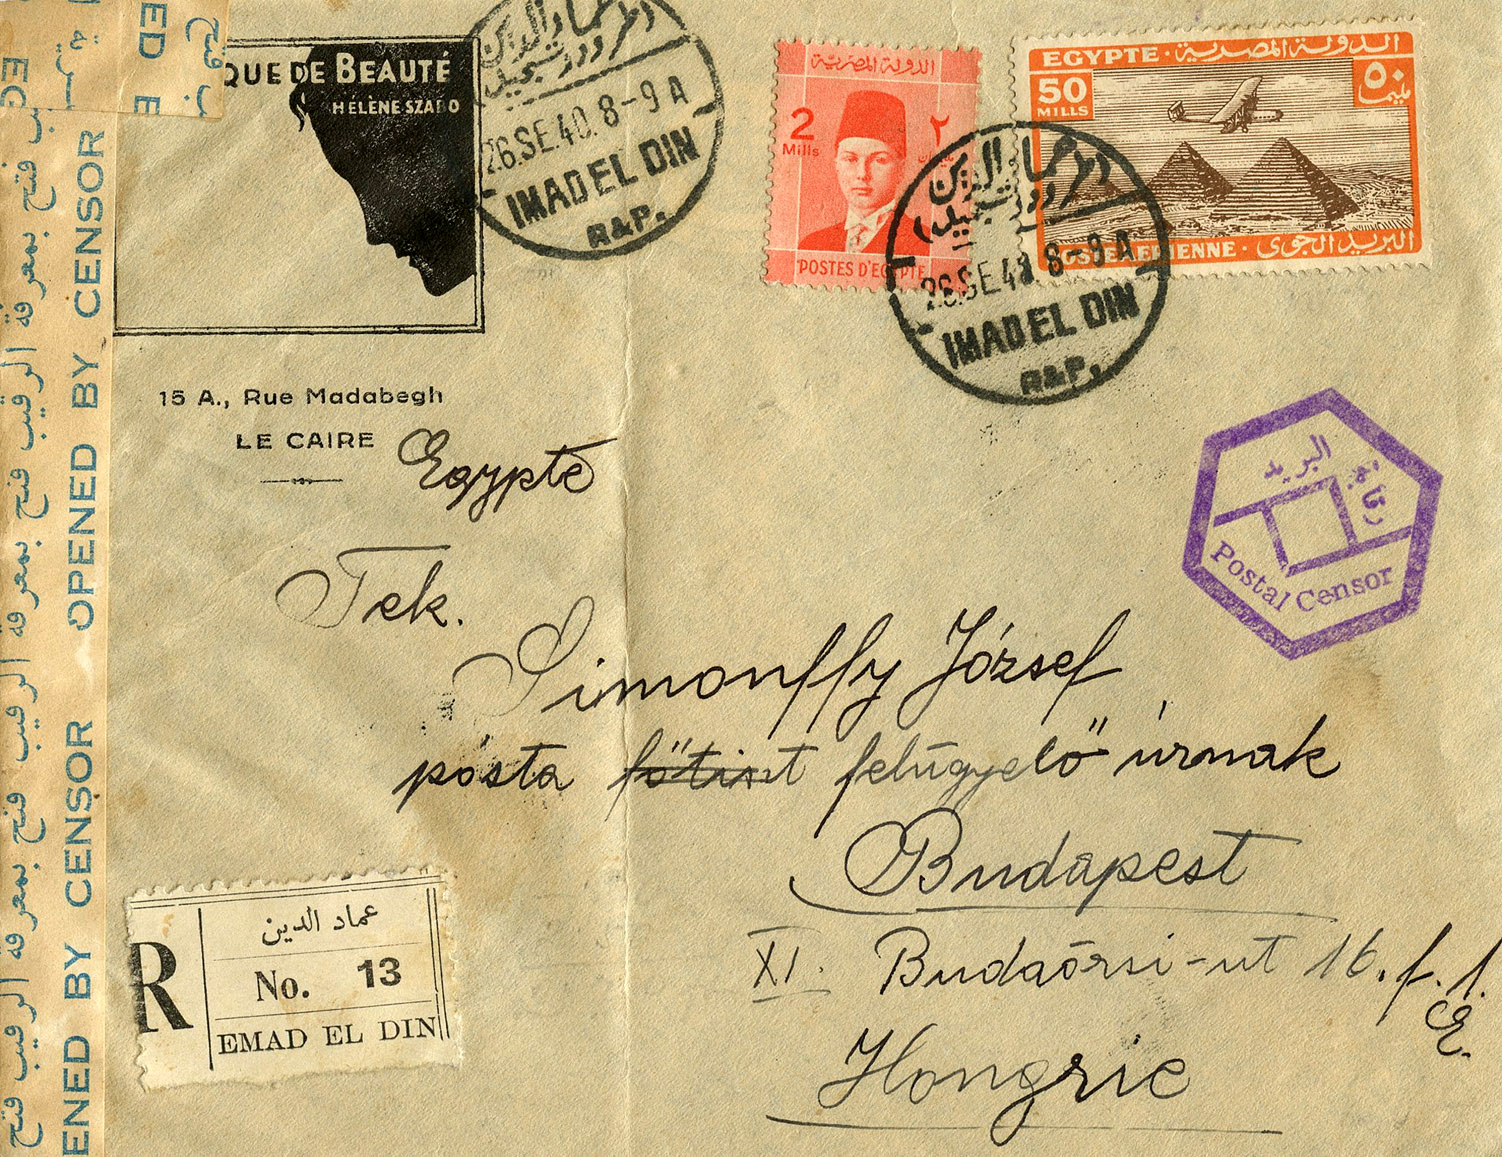 QUE DE BEAUTÉ
HÉLÈNE SZABO
15 A., Rue Madabegh
LE CAIRE
Egypte
عماد الدين
26.SE.40.8-9A
IMAD EL DIN
R&P.
الدولة المصرية
2 ٢
Mills
POSTES D'EGYPTE
EGYPTE · الدولة المصرية
50 ٥٠
MILLS مليما
POSTE AERIENNE · البريد الجوى
عماد الدين
26.SE.40.8-9A
IMAD EL DIN
R&P.
رقابة البريد
Postal Censor
Tek.
Simonffy József
pósta főtiszt felügyelő úrnak
Budapest
XI. Budaörsi-ut 16. f. 1.
E.
Hongrie
R
عماد الدين
No. 13
EMAD EL DIN
OPENED BY CENSOR
فتح بمعرفة الرقيب فتح بمعرفة الرقيب فتح بمعرفة الرقيب فتح
ENED BY CENSOR
ED E
فتح